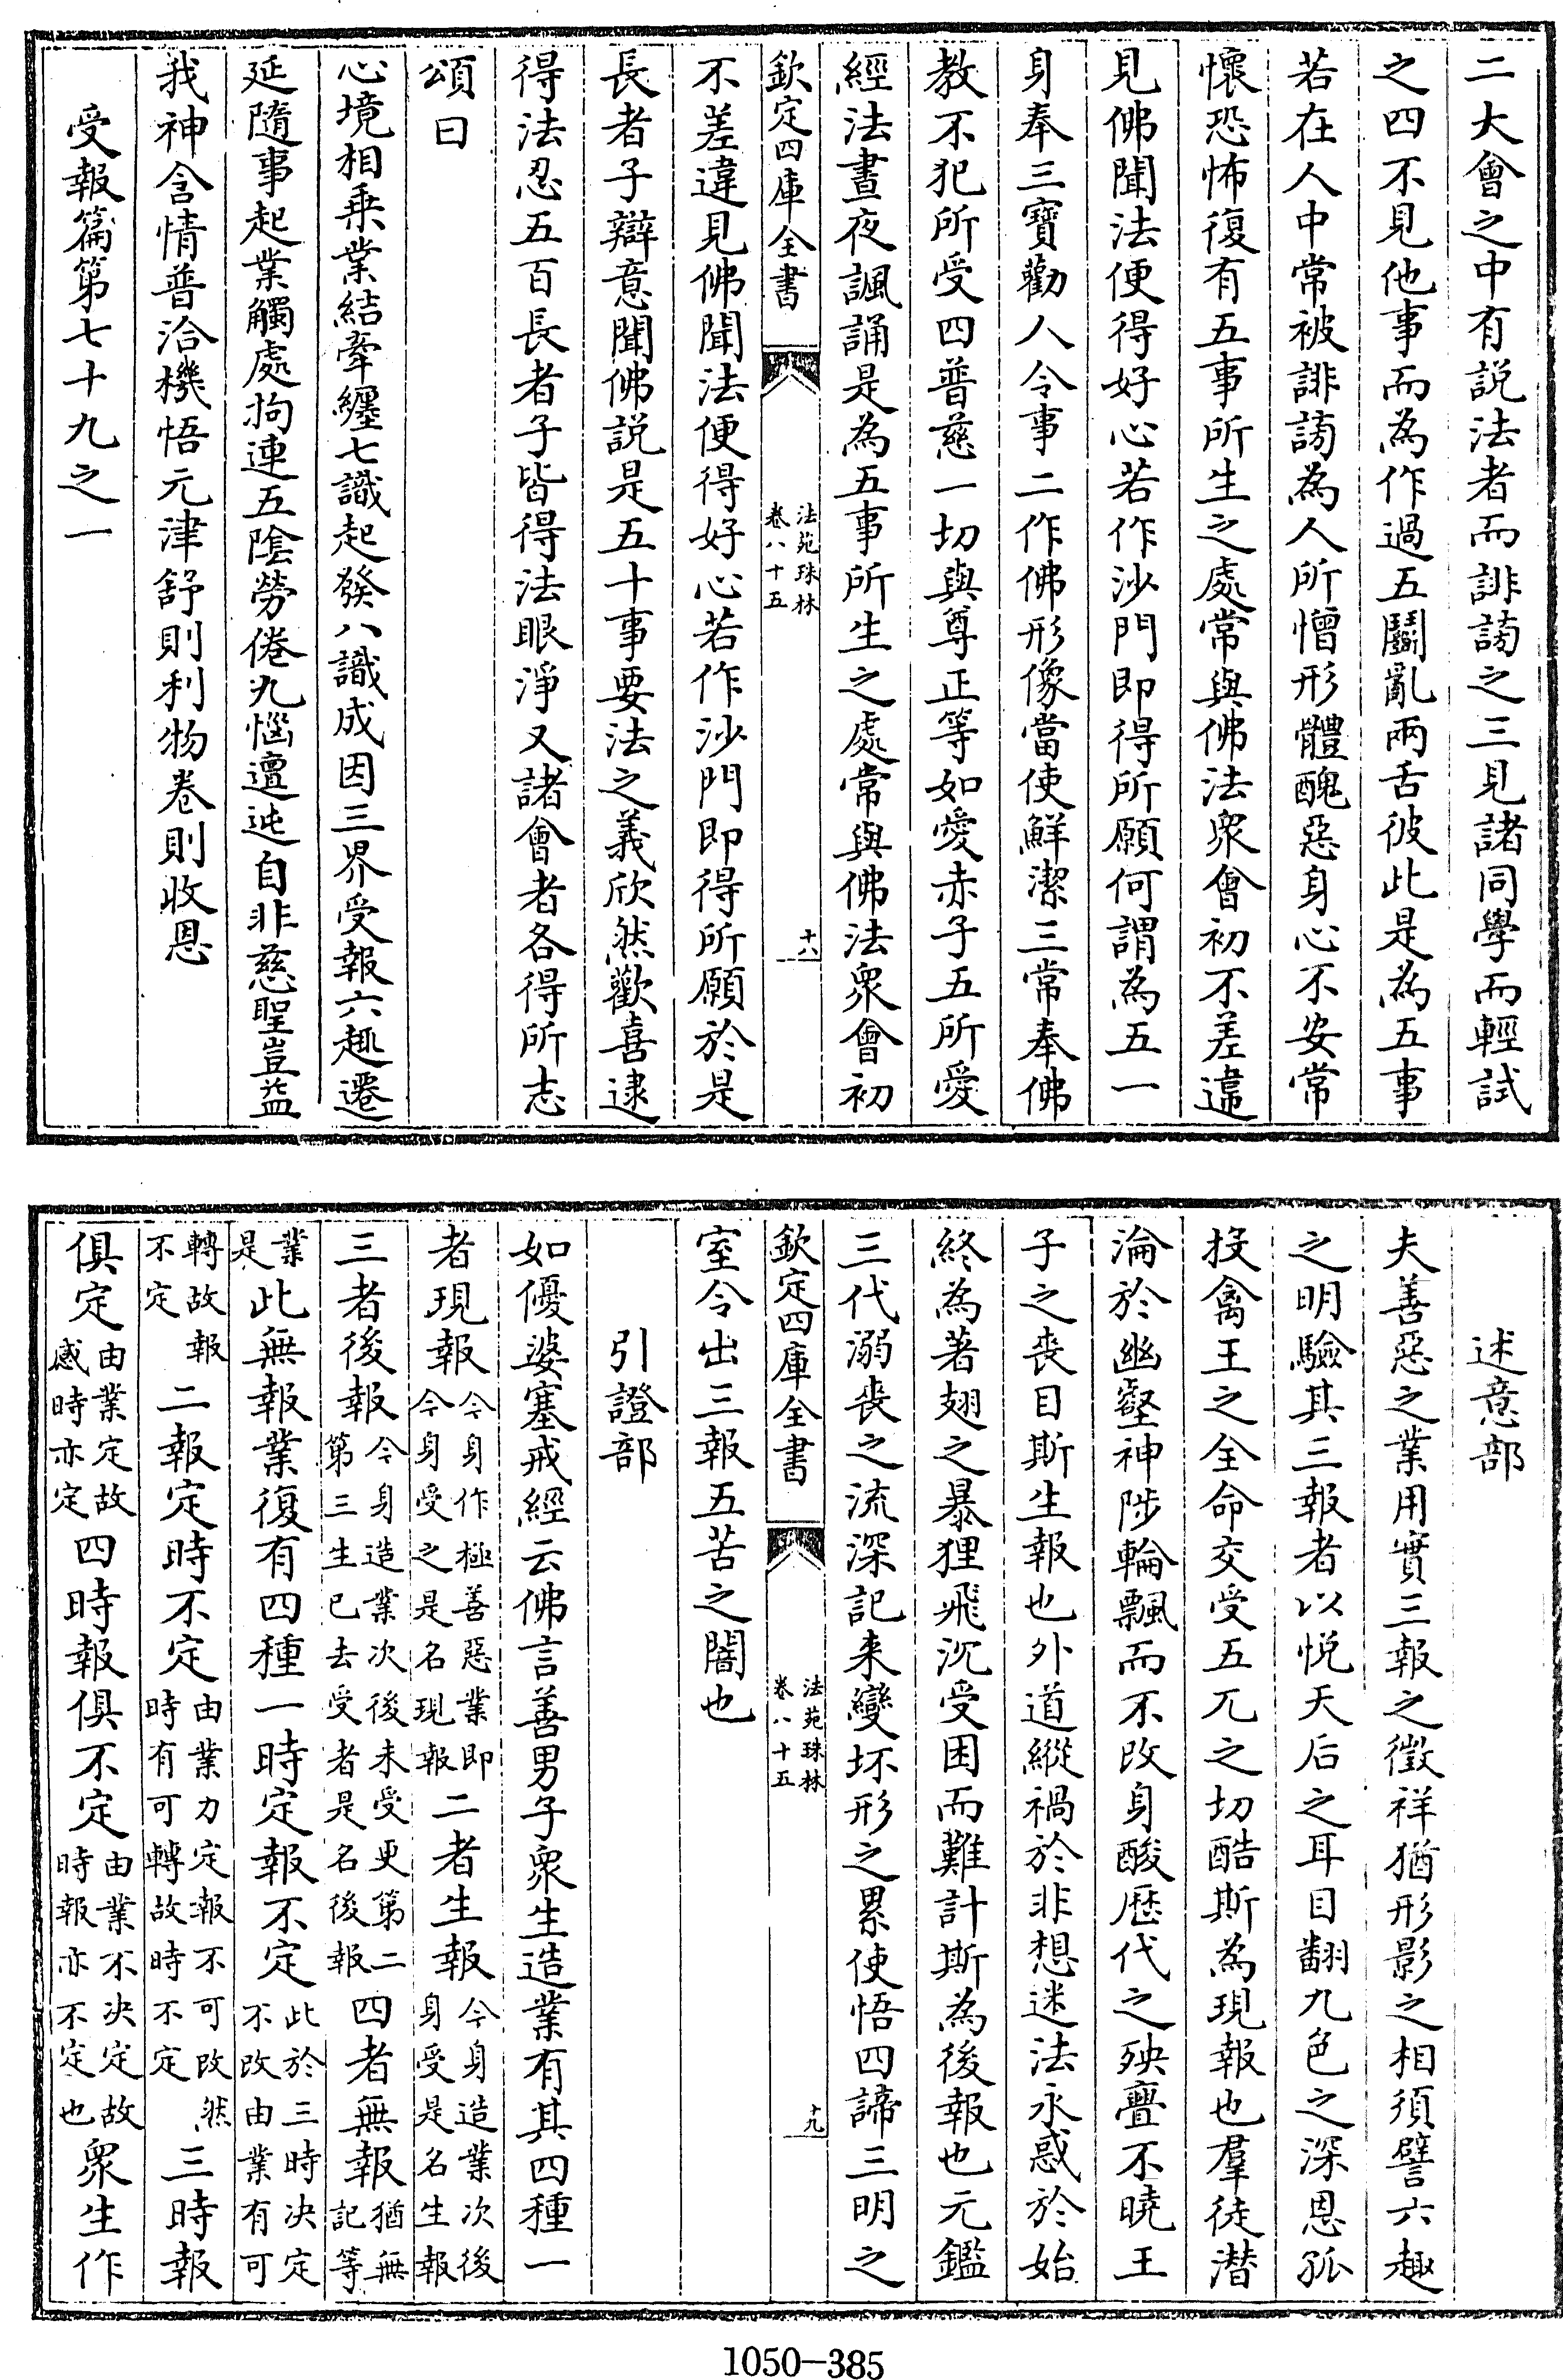 二大會之中有説法者而誹謗之三見諸同學而輕試
之四不見他事而為作過五鬭亂兩舌彼此是為五事
若在人中常被誹謗為人所憎形體醜惡身心不安常
懷恐怖復有五事所生之處常與佛法衆會初不差違
見佛聞法便得好心若作沙門即得所願何謂為五一
身奉三寶勸人令事二作佛形像當使鮮潔三常奉佛
教不犯所受四普慈一切與尊正等如愛赤子五所愛
經法晝夜諷誦是為五事所生之處常與佛法衆會初
欽定四庫全書
法苑珠林
卷八十五
十八
不差違見佛聞法便得好心若作沙門即得所願於是
長者子辯意聞佛説是五十事要法之義欣然歡喜逮
得法忍五百長者子皆得法眼淨又諸會者各得所志
頌曰
心境相乗業結牽纏七識起發八識成因三界受報六趣遷
延隨事起業觸處拘連五陰勞倦九惱邅迍自非慈聖豈益
我神含情普洽機悟元津舒則利物卷則收恩
受報篇第七十九之一
述意部
夫善惡之業用實三報之徵祥猶形影之相須譬六趣
之明驗其三報者以悦天后之耳目翻九色之深恩孤
投禽王之全命交受五兀之切酷斯為現報也羣徒潜
淪於幽壑神陟輪飄而不改身酸歴代之殃亹不曉王
子之喪目斯生報也外道縱禍於非想迷法永惑於始
終為著翅之暴狸飛沉受困而難計斯為後報也元鑑
三代溺喪之流深記来變坏形之累使悟四諦三明之
欽定四庫全書
法苑珠林
卷八十五
十九
室令出三報五苦之闇也
引證部
如優婆塞戒經云佛言善男子衆生造業有其四種一
者現報今身作極善惡業即今身受之是名現報二者生報今身造業次後身受是名生報
三者後報今身造業次後未受更第二第三生已去受者是名後報四者無報猶無記等
業是此無報業復有四種一時定報不定此於三時決定不改由業有可
轉故報不定二報定時不定由業力定報不可改然時有可轉故時不定三時報
俱定由業定故感時亦定四時報俱不定由業不决定故時報亦不定也衆生作
1050-385